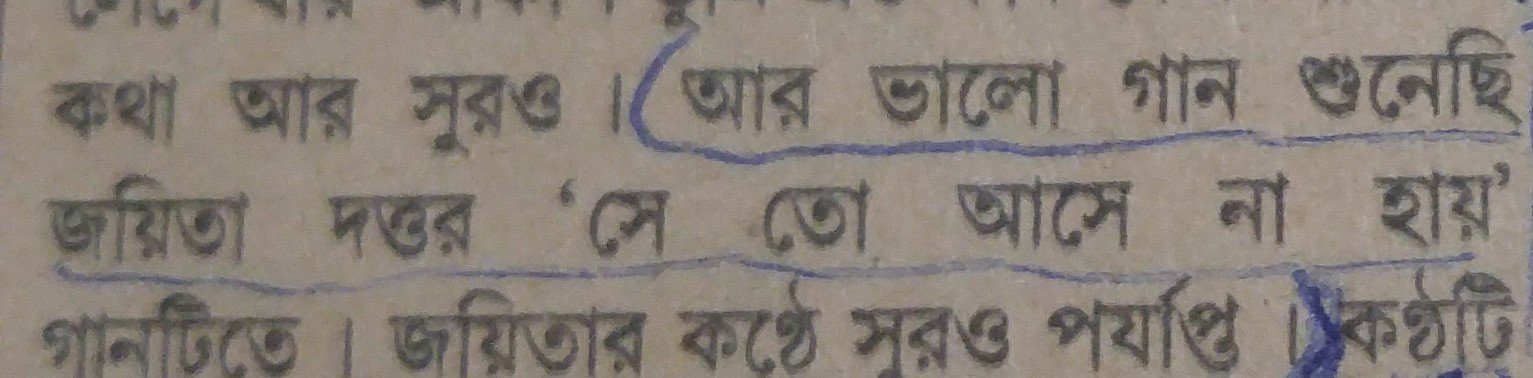 কথা আর সুরও । আর ভালো গান শুনেছি
জয়িতা দত্তর ‘সে তো আসে না হায়’
গানটিতে । জয়িতার কণ্ঠে সুরও পর্যাপ্ত । কণ্ঠটি